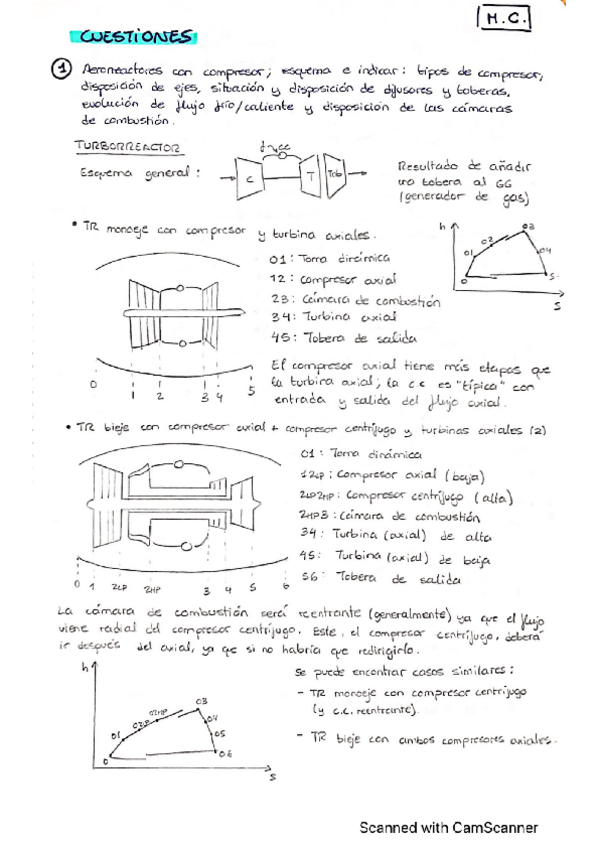 M.C.
CUESTIONES
① Aerorreactores con compresor; esquema e indicar: tipos de compresor,
disposición de ejes, situación y disposición de difusores y toberas,
evolución de flujo frío/caliente y disposición de las cámaras
de combustión.
TURBORREACTOR
Esquema general:
cc
C
T
Tob
Resultado de añadir
una tobera al GG
(generador de gas)
• TR monoeje con compresor y turbina axiales.
h
03
02
01
04
0
5
S
01: Toma dinámica
12: Compresor axial
23: Cámara de combustión
34: Turbina axial
45: Tobera de salida
0 1 2 3 4 5
El compresor axial tiene más etapas que
la turbina axial; la c.c es "típica" con
entrada y salida del flujo axial.
• TR bieje con compresor axial + compresor centrífugo y turbinas axiales (2)
01: Toma dinámica
12LP: Compresor axial (baja)
2LP2HP: Compresor centrífugo (alta)
2HP3: Cámara de combustión
34: Turbina (axial) de alta
45: Turbina (axial) de baja
56: Tobera de salida
0 1 2LP 2HP 3 4 5 6
La cámara de combustión será reentrante (generalmente) ya que el flujo
viene radial del compresor centrífugo. Este, el compresor centrífugo, deberá
ir después del axial, ya que si no habría que redirigirlo.
h
03
02HP
02LP
01
04
05
0
06
S
Se puede encontrar casos similares:
- TR monoeje con compresor centrífugo
(y c.c. reentrante).
- TR bieje con ambos compresores axiales.
Scanned with CamScanner